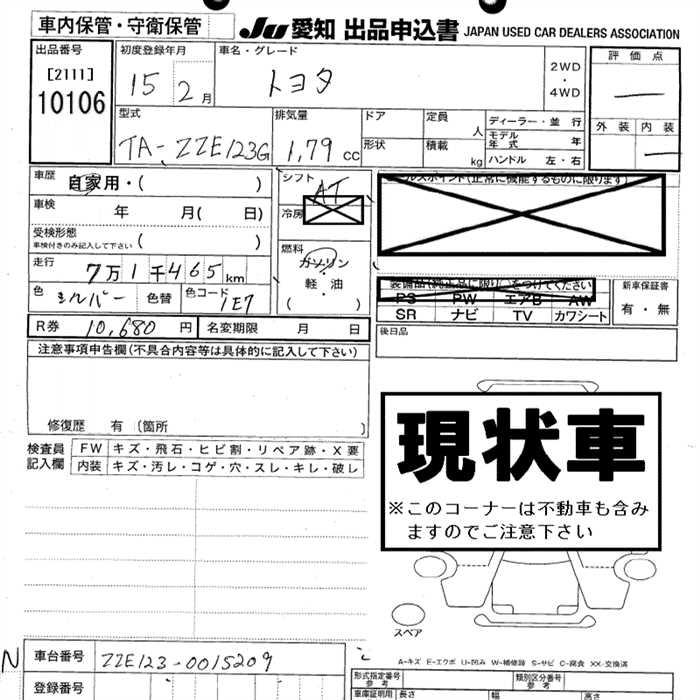 車内保管・守衛保管
JU 愛知 出品申込書 JAPAN USED CAR DEALERS ASSOCIATION
出品番号
[2111]
10106
初度登録年月
15 2月
車名・グレード
トヨタ
2WD
・
4WD
評価点
—
外装 内装
—
型式
TA-ZZE123G
排気量
1,79 cc
ドア
形状
定員 人
積載 kg
ディーラー・並行
モデル年式 年
ハンドル 左・右
車歴 自家用・( )
車検 年 月( 日)
受検形態
車検付きのみ記入して下さい ( )
走行 7万1千465km
色 シルバー 色替 色コード 1E7
シフト AT
冷房
燃料
ガソリン
軽・油
( )
セールスポイント(正常に機能するものに限ります)
装備品(純正品に限り○をつけてください)
PS PW エアB AW
SR ナビ TV カワシート
新車保証書
有・無
R券 10,680 円 名変期限 月 日
後日品
注意事項申告欄(不具合内容等は具体的に記入して下さい)
修復歴 有 〔箇所 〕
検査員
記入欄
FW キズ・飛石・ヒビ割・リペア跡・X要
内装 キズ・汚レ・コゲ・穴・スレ・キレ・破レ
現状車
※このコーナーは不動車も含み
ますのでご注意下さい
スペア
A-キズ E-エクボ U-凹み W-補修跡 S-サビ C-腐食 XX-交換済
N 車台番号 ZZE123-0015209
登録番号
形式指定番号
参考
類別区分番号
参考
車庫証明用 長さ 幅 高さ